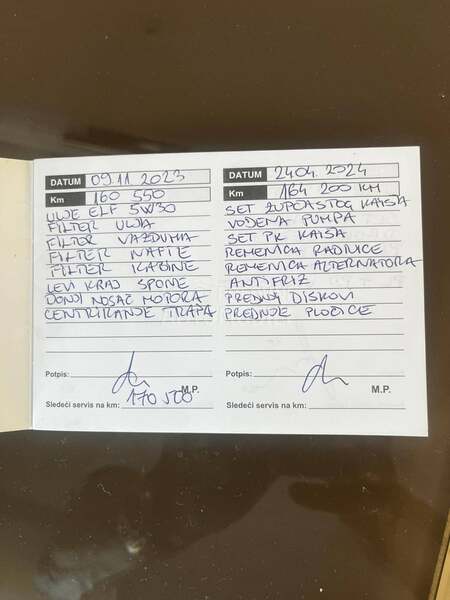 DATUM 09.11.2023
Km 160 550
ULJE ELF 5W30
FILTER ULJA
FILTER VAZDUHA
FILTER NAFTE
FILTER KABINE
LEVI KRAJ SPONE
DONJI NOSAČ MOTORA
CENTRIRANJE TRAPA
Potpis:
M.P.
170 500
Sledeći servis na km:
DATUM 24.04.2024
Km 164 200 KM
SET ZUPČASTOG KAIŠA
VODENA PUMPA
SET PK KAIŠA
REMENICA RADILICE
REMENICA ALTERNATORA
ANTIFRIZ
PREDNJI DISKOVI
PREDNJE PLOČICE
Potpis:
M.P.
Sledeći servis na km: